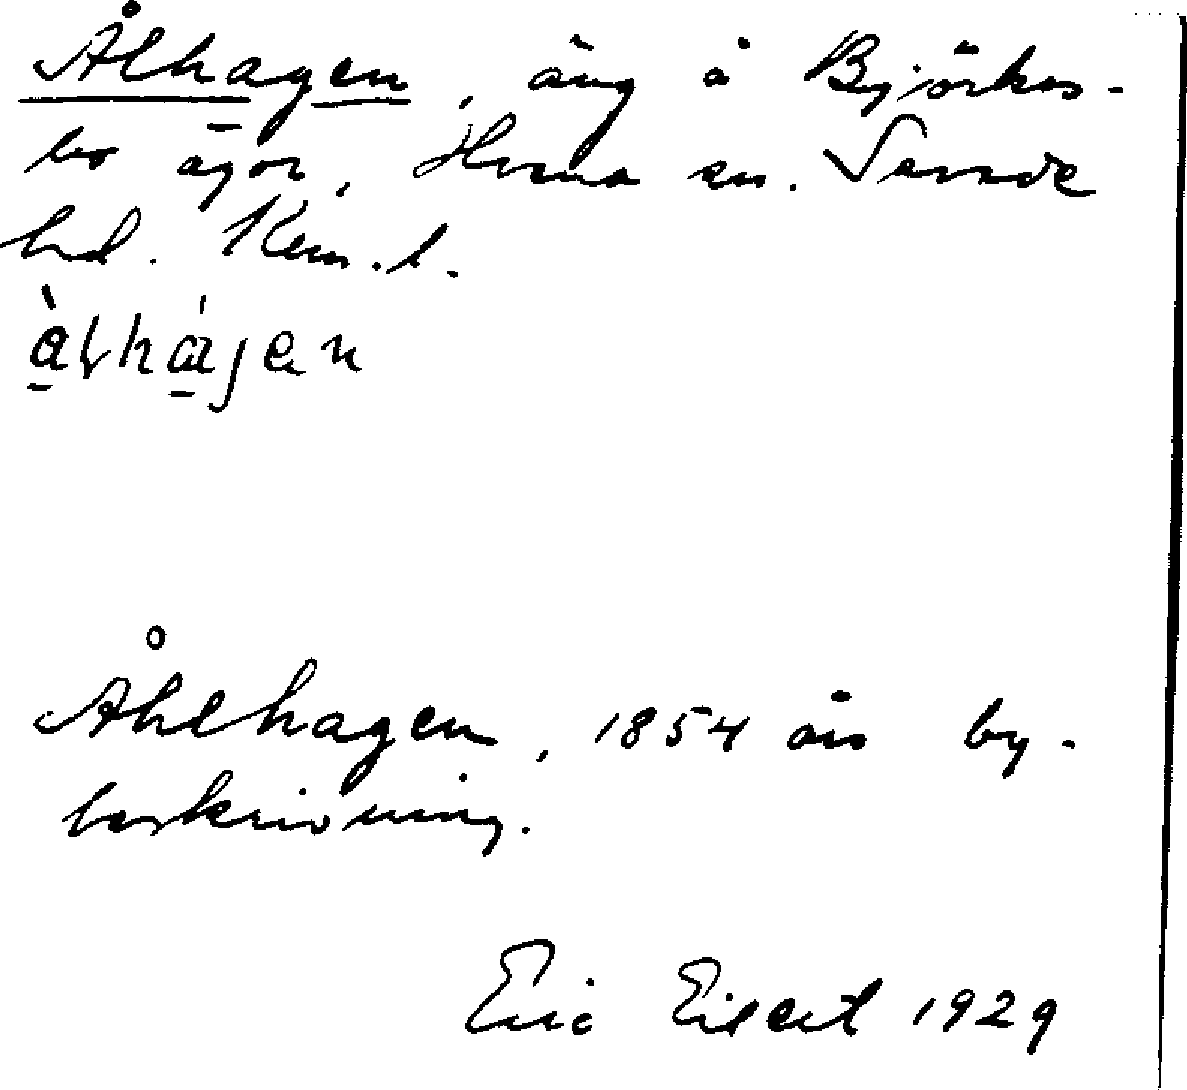 Ålhagen, äng å Björkes-
bo ägor, Husna sn. Tensde
hd. Kem. l.
àlhágen
Åhlhagen, 1854 års by-
beskrivning.
Eric Elgert 1929